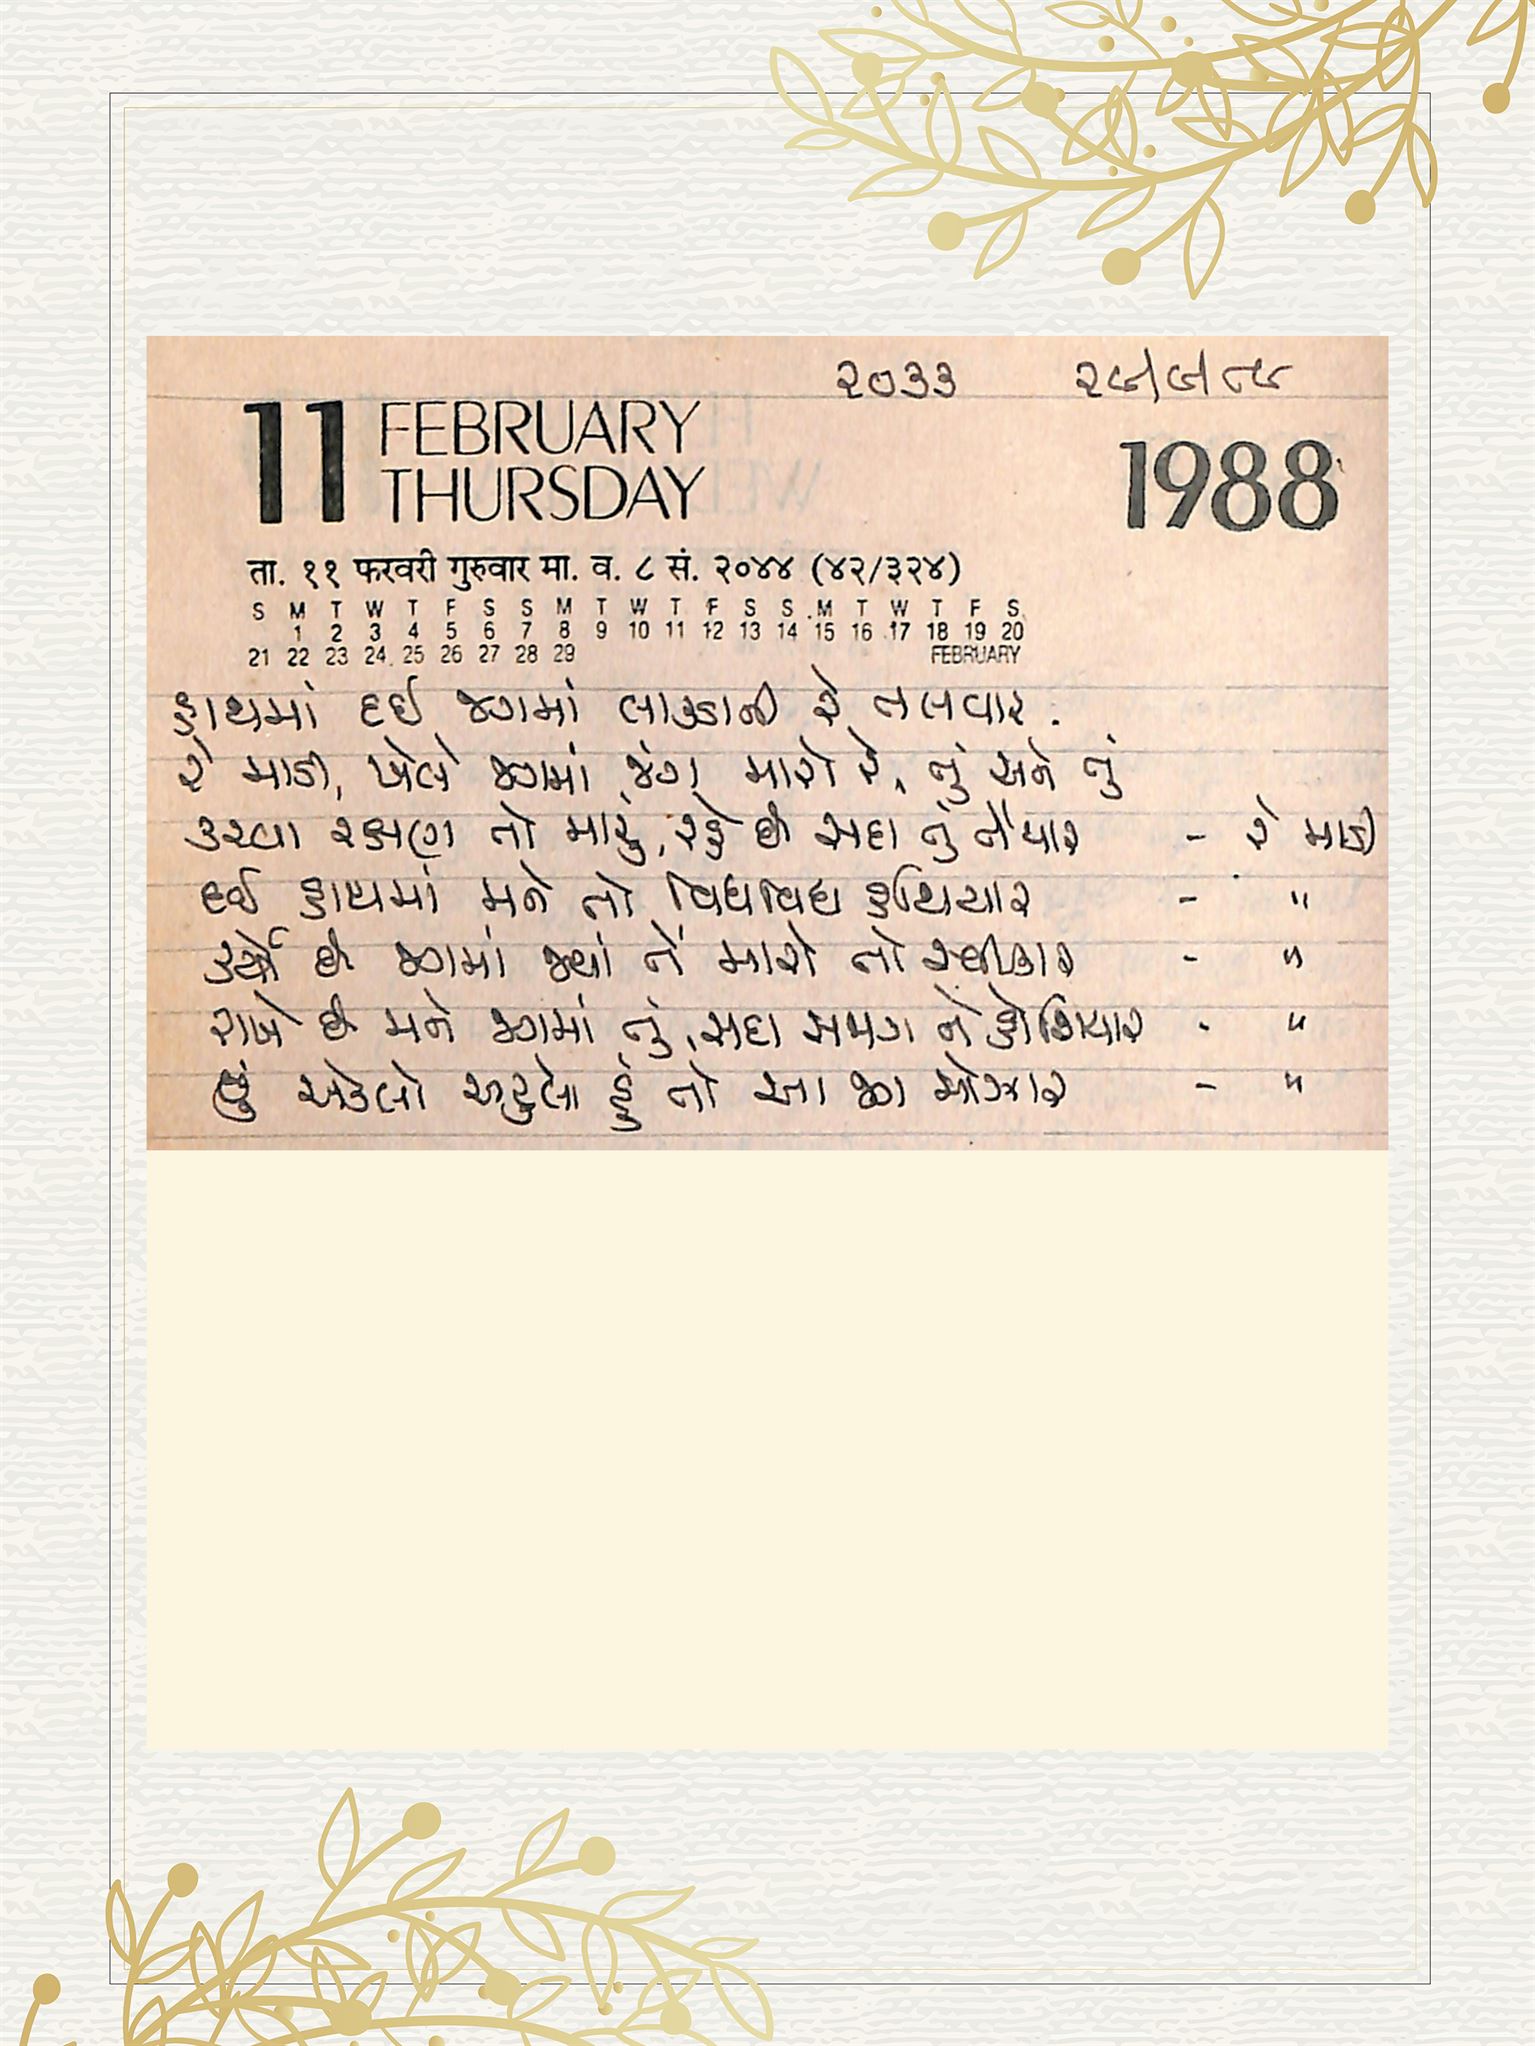 ૨૦૩૩ ૨૯/૯/૮૯
11 FEBRUARY
THURSDAY
1988
ता. ११ फरवरी गुरुवार मा. व. ८ सं. २०४४ (४२/३२४)
S M T W T F S S M T W T F S S M T W T F S
1 2 3 4 5 6 7 8 9 10 11 12 13 14 15 16 17 18 19 20
21 22 23 24 25 26 27 28 29 FEBRUARY
હાથમાં દઈ જગમાં લાકડાની રે તલવાર.
રે માડી, ખેલે જગમાં જંગ મારો રે, તું અને તું
કરવા રક્ષણ તો મારું, રહે છે સદા તું તૈયાર - રે માડી
દઈ હાથમાં મને તો વિધવિધ હથિયાર - "
છે જગમાં જ્યાં તેં મારો તો સ્વીકાર - "
રાખે છે મને જગમાં તું, સદા સજાગ ને હોશિયાર - "
છું એકલો અટુલો હું તો આ જગ મોઝાર - "